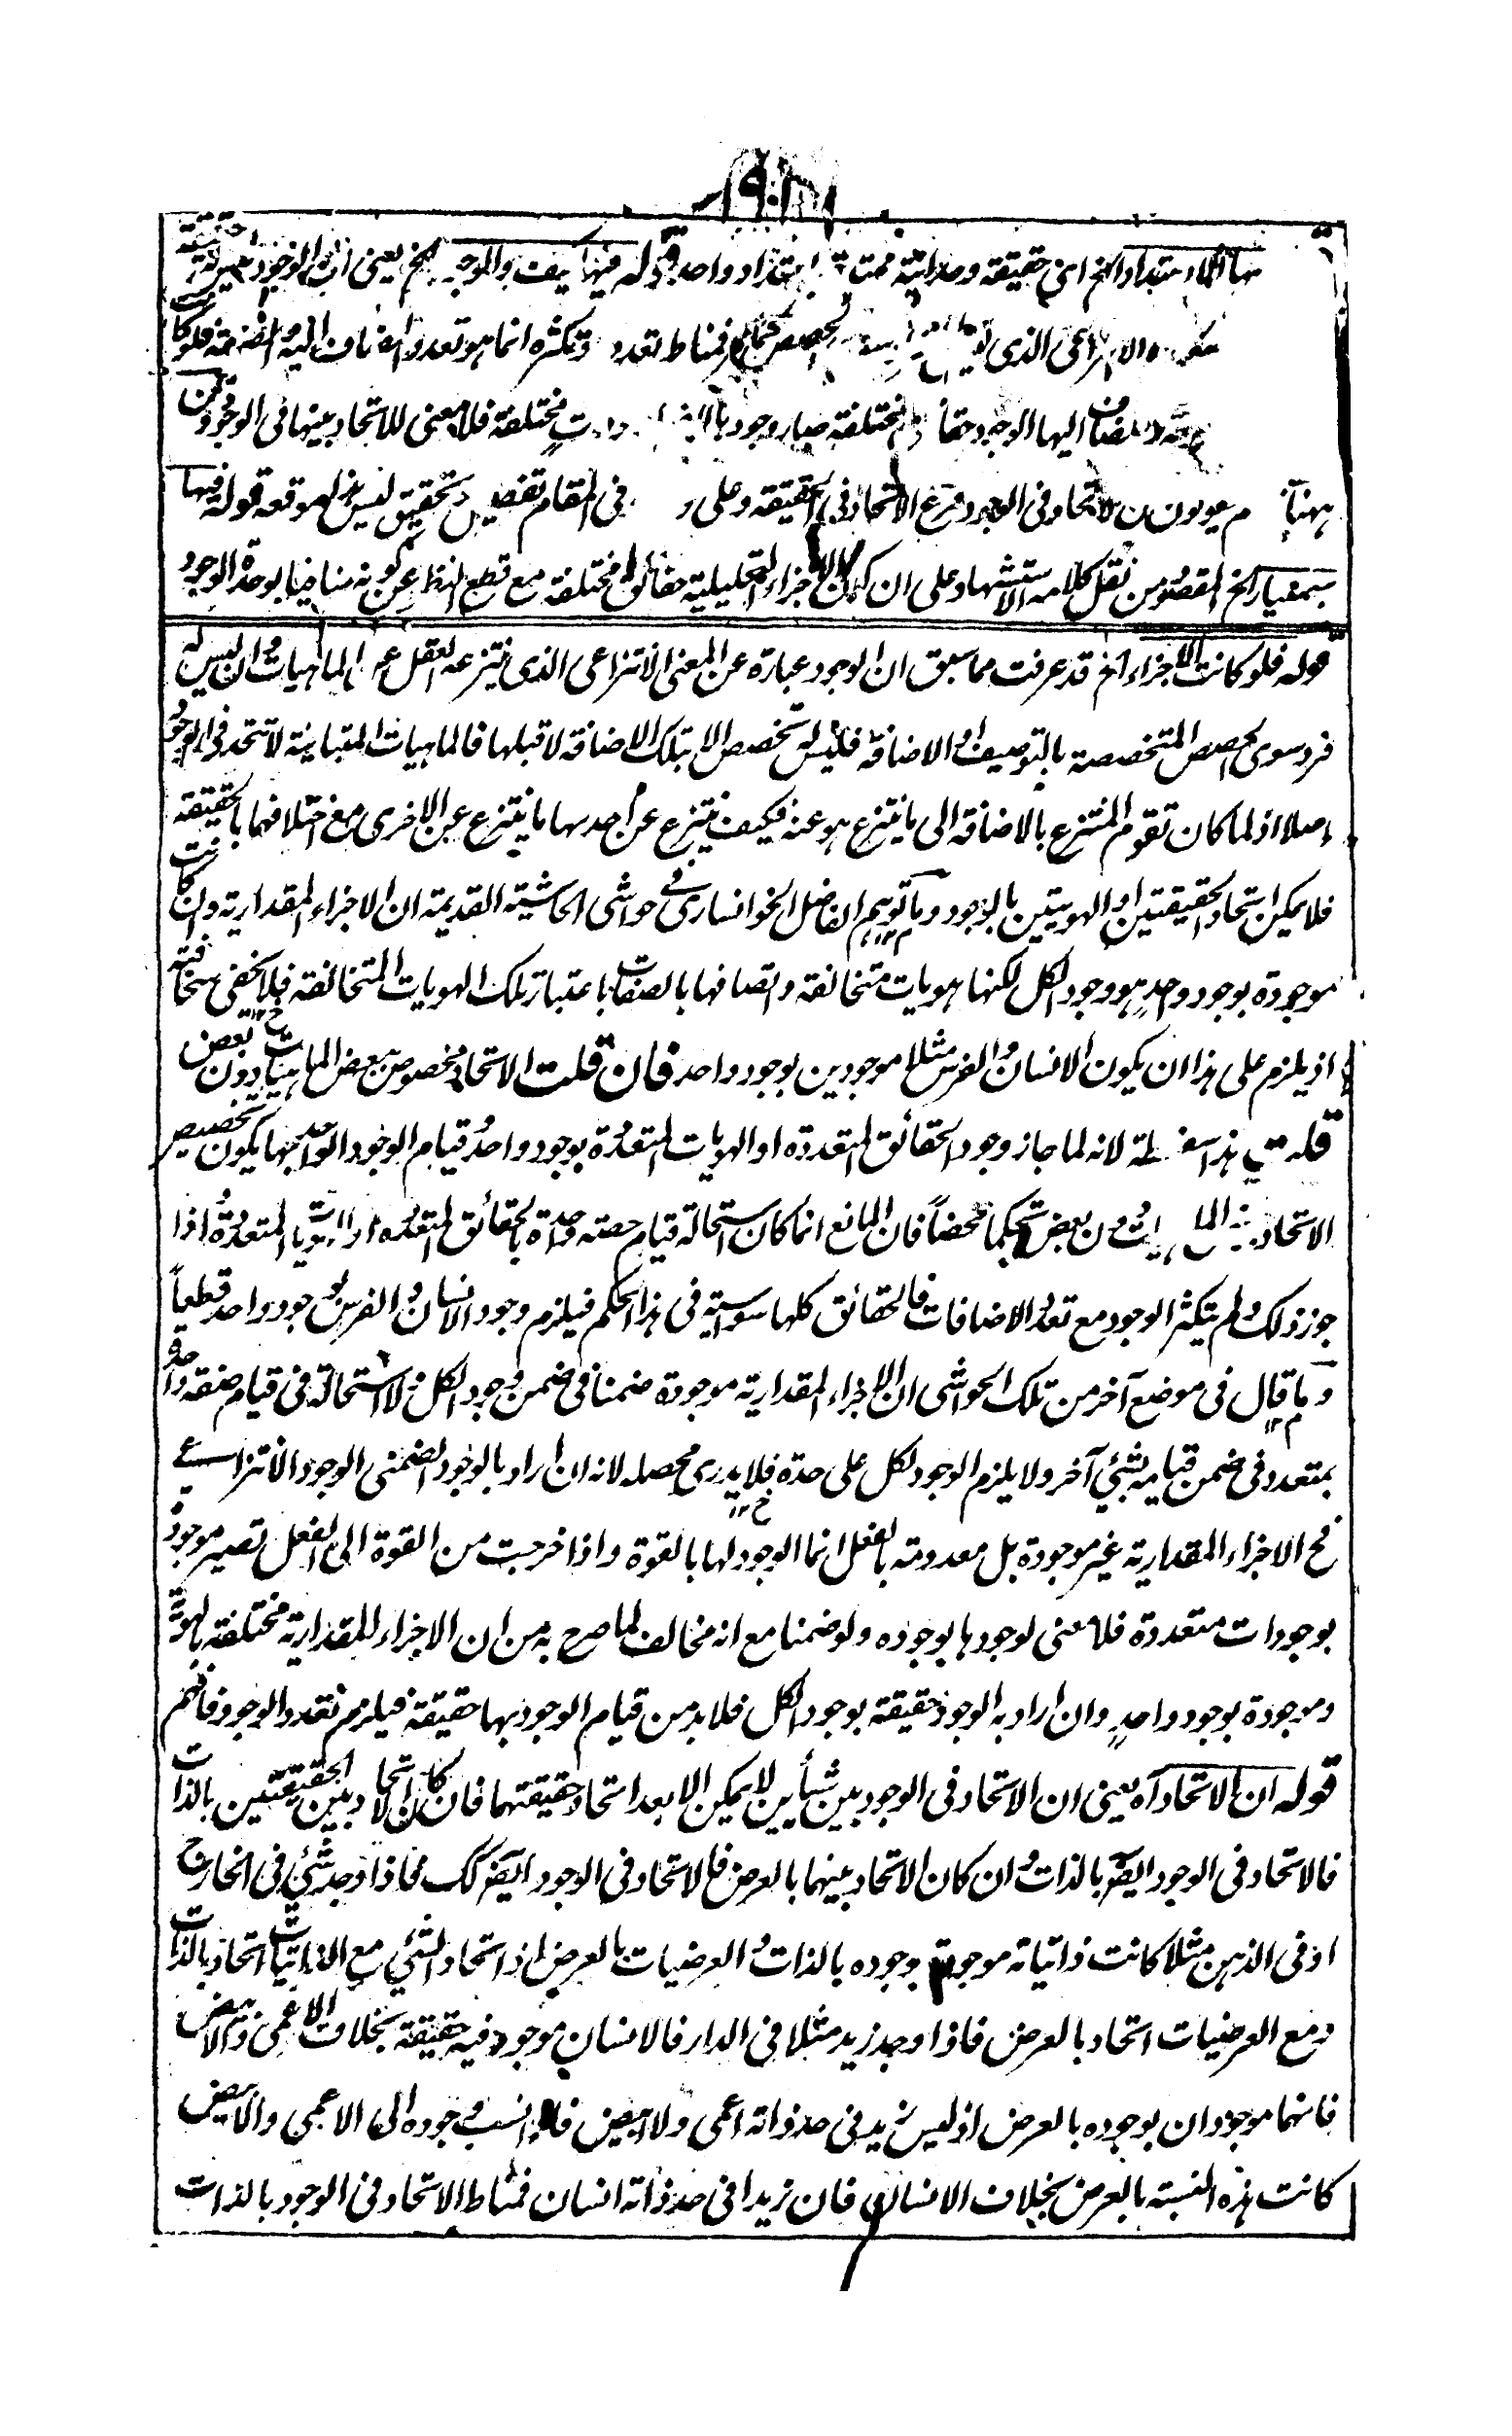 اى حقيقة وحدانية واحد قوله فيها كيف والموجه الخ يعنى ان الوجود ليس له حقيقة
الذى الحصص فمناط تعدده وتكثره انما هو تعدد المضاف اليه فلو كانت
اليها الوجود حقائق مختلفة صار وجودات مختلفة فلا معنى للاتحاد بينها فى الوجود ومن
ههنا الاتحاد فى الوجود فرع الاتحاد فى الحقيقة وعلى فى المقام تفصيل وتحقيق ليس هذا موقعه قوله فيها
بهمنيار الخ المقصود من نقل كلامه الاستشهاد على ان كون الاجزاء التحليلية حقائق مختلفة مع قطع النظر عن كونه منافيا لوحدة الوجود
قوله فلو كانت الاجزاء الخ قد عرفت مما سبق ان الوجود عبارة عن المعنى الانتزاعى الذى ينتزعه العقل عن الماهيات وان ليس له
فرد سوى الحصص المتخصصة بالتوصيف او الاضافة فليس له تخصص الا بتلك الاضافة لا قبلها فالماهيات المتباينة لا تتحد فى الوجود
اصلا اذ لما كان تقوم المنتزع بالاضافة الى ما ينتزع هو عنه فكيف ينتزع عن احدىها ما ينتزع عن الاخرى مع اختلافهما بالحقيقة
فلا يمكن اتحاد الحقيقتين او الهويتين بالوجود وما توهم الفاضل الخوانسارى فى حواشى الحاشية القديمة ان الاجزاء المقدارية وان كانت
موجودة بوجود واحد هو وجود الكل لكنها هويات متخالفة واتصافها بالصفات باعتبار تلك الهويات المتخالفة فلا يخفى سخافته
اذ يلزم على هذا ان يكون الانسان والفرس مثلا موجودين بوجود واحد فان قلت الاتحاد مخصوص ببعض الماهيات دون بعض
قلت هذا سفسطة لانه لما جاز وجود الحقائق المتعددة او الهويات المتعددة بوجود واحد وقيام الوجود الواحد بها يكون تخصيص
الاتحاد دون بعض تحكما محضاً فان المانع انما كان استحالة قيام حصة واحدة بالحقائق المتعددة او الهويات المتعددة اذا
جوز ذلك ولم يتكثر الوجود مع تعدد الاضافات فالحقائق كلها سواسية فى هذا الحكم فيلزم وجود الانسان والفرس بوجود واحد قطعاً
وما قال فى موضع آخر من تلك الحواشى ان الاجزاء المقدارية موجودة ضمنا فى ضمن وجود الكل ولا استحالة فى قيام صفة واحدة
بمتعدد فى ضمن قيامه بشئ آخر ولا يلزم الوجود لكل على حدة فلا يدرى محصله لانه ان اراد بالوجود الضمنى الوجود الانتزاعى
فح الاجزاء المقدارية غير موجودة بل معدومة بالفعل انما الوجود لها بالقوة واذا خرجت من القوة الى الفعل تصير موجودة
بوجودات متعددة فلا معنى لوجودها بوجوده ولو ضمنا مع انه مخالف لما صرح به من ان الاجزاء المقدارية مختلفة بالهوية
وموجودة بوجود واحد وان اراد به الوجود حقيقة بوجود الكل فلا بد من قيام الوجود بها حقيقة فيلزم تعدد الوجود فافهم
قوله ان الاتحاد آه يعنى ان الاتحاد فى الوجود بين شيأين لا يمكن الا بعد اتحاد حقيقتهما فان كان الاتحاد بين الحقيقتين بالذات
فالاتحاد فى الوجود ايضر بالذات وان كان الاتحاد بينهما بالعرض فالاتحاد فى الوجود ايضر كك فاذا وجد شئ فى الخارج
او فى الذهن مثلا كانت ذاتياته موجودة بوجوده بالذات والعرضيات بالعرض اذ اتحاد الشئ مع الذاتيات اتحاد بالذات
ومع العرضيات اتحاد بالعرض فاذا وجد زيد مثلا فى الدار فالانسان موجود فيه حقيقة بخلاف الاعمى والابيض
فانهما موجودان بوجوده بالعرض اذ ليس زيد فى حد ذاته اعمى ولا ابيض فاذا نسب وجوده الى الاعمى والابيض
كانت هذه النسبة بالعرض بخلاف الانسان فان زيدا فى حد ذاته انسان فمناط الاتحاد فى الوجود بالذات